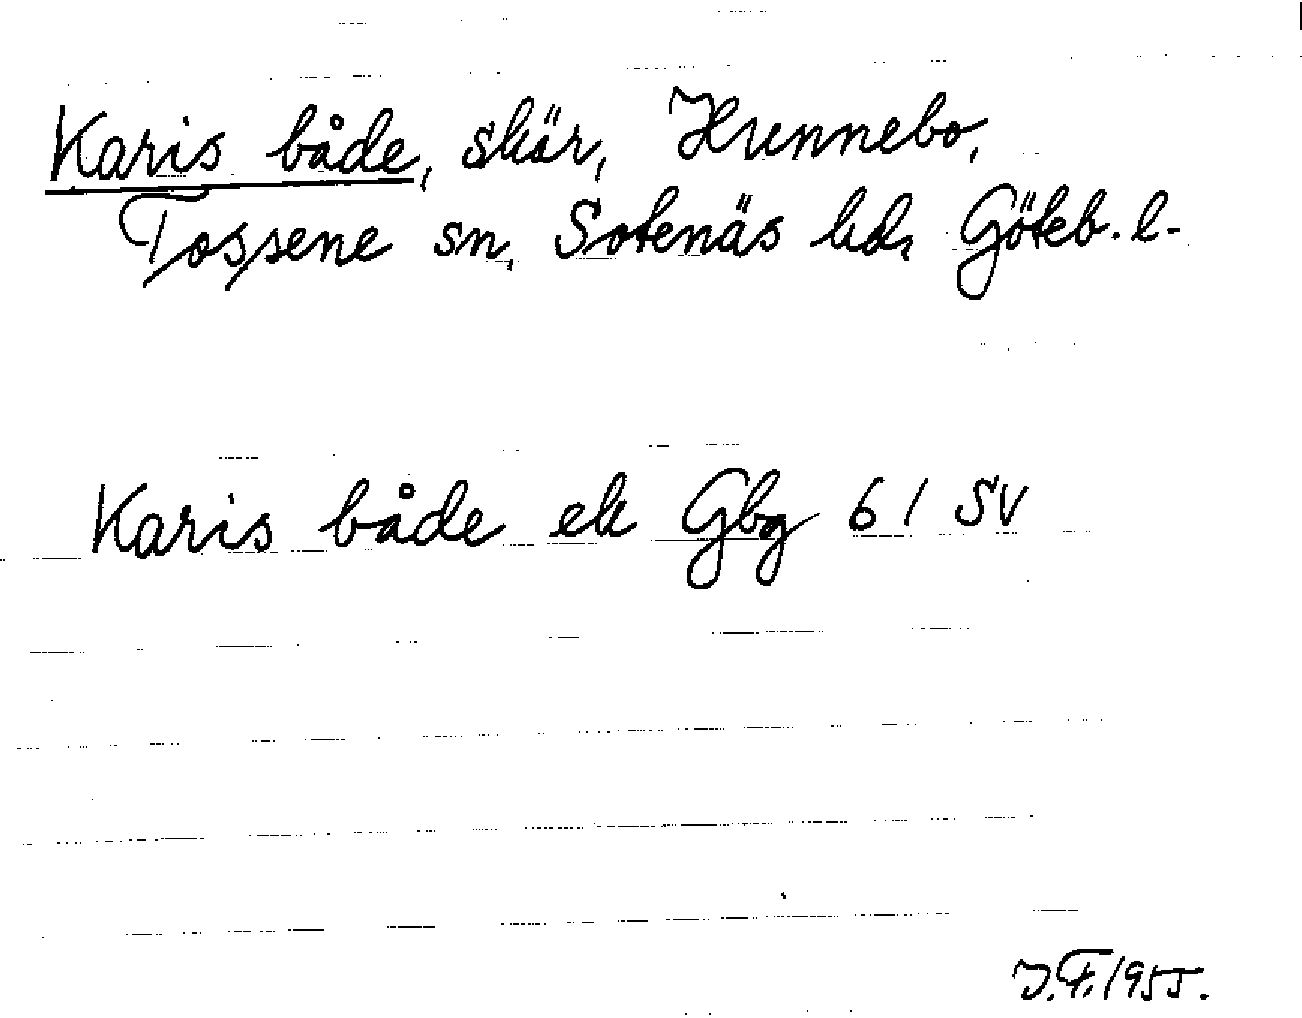 Karis både, skär, Hunnebo,
Tossene sn, Sotenäs hd, Göteb. l.
Karis både ek Gbg 61 SV
J.F. 1955.